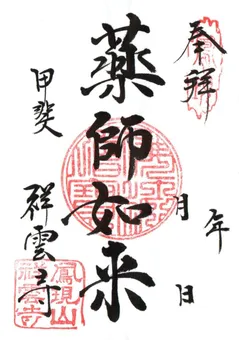 奉拝
年 月 日
薬師如来
甲斐
祥雲寺
鳳現山
祥雲寺